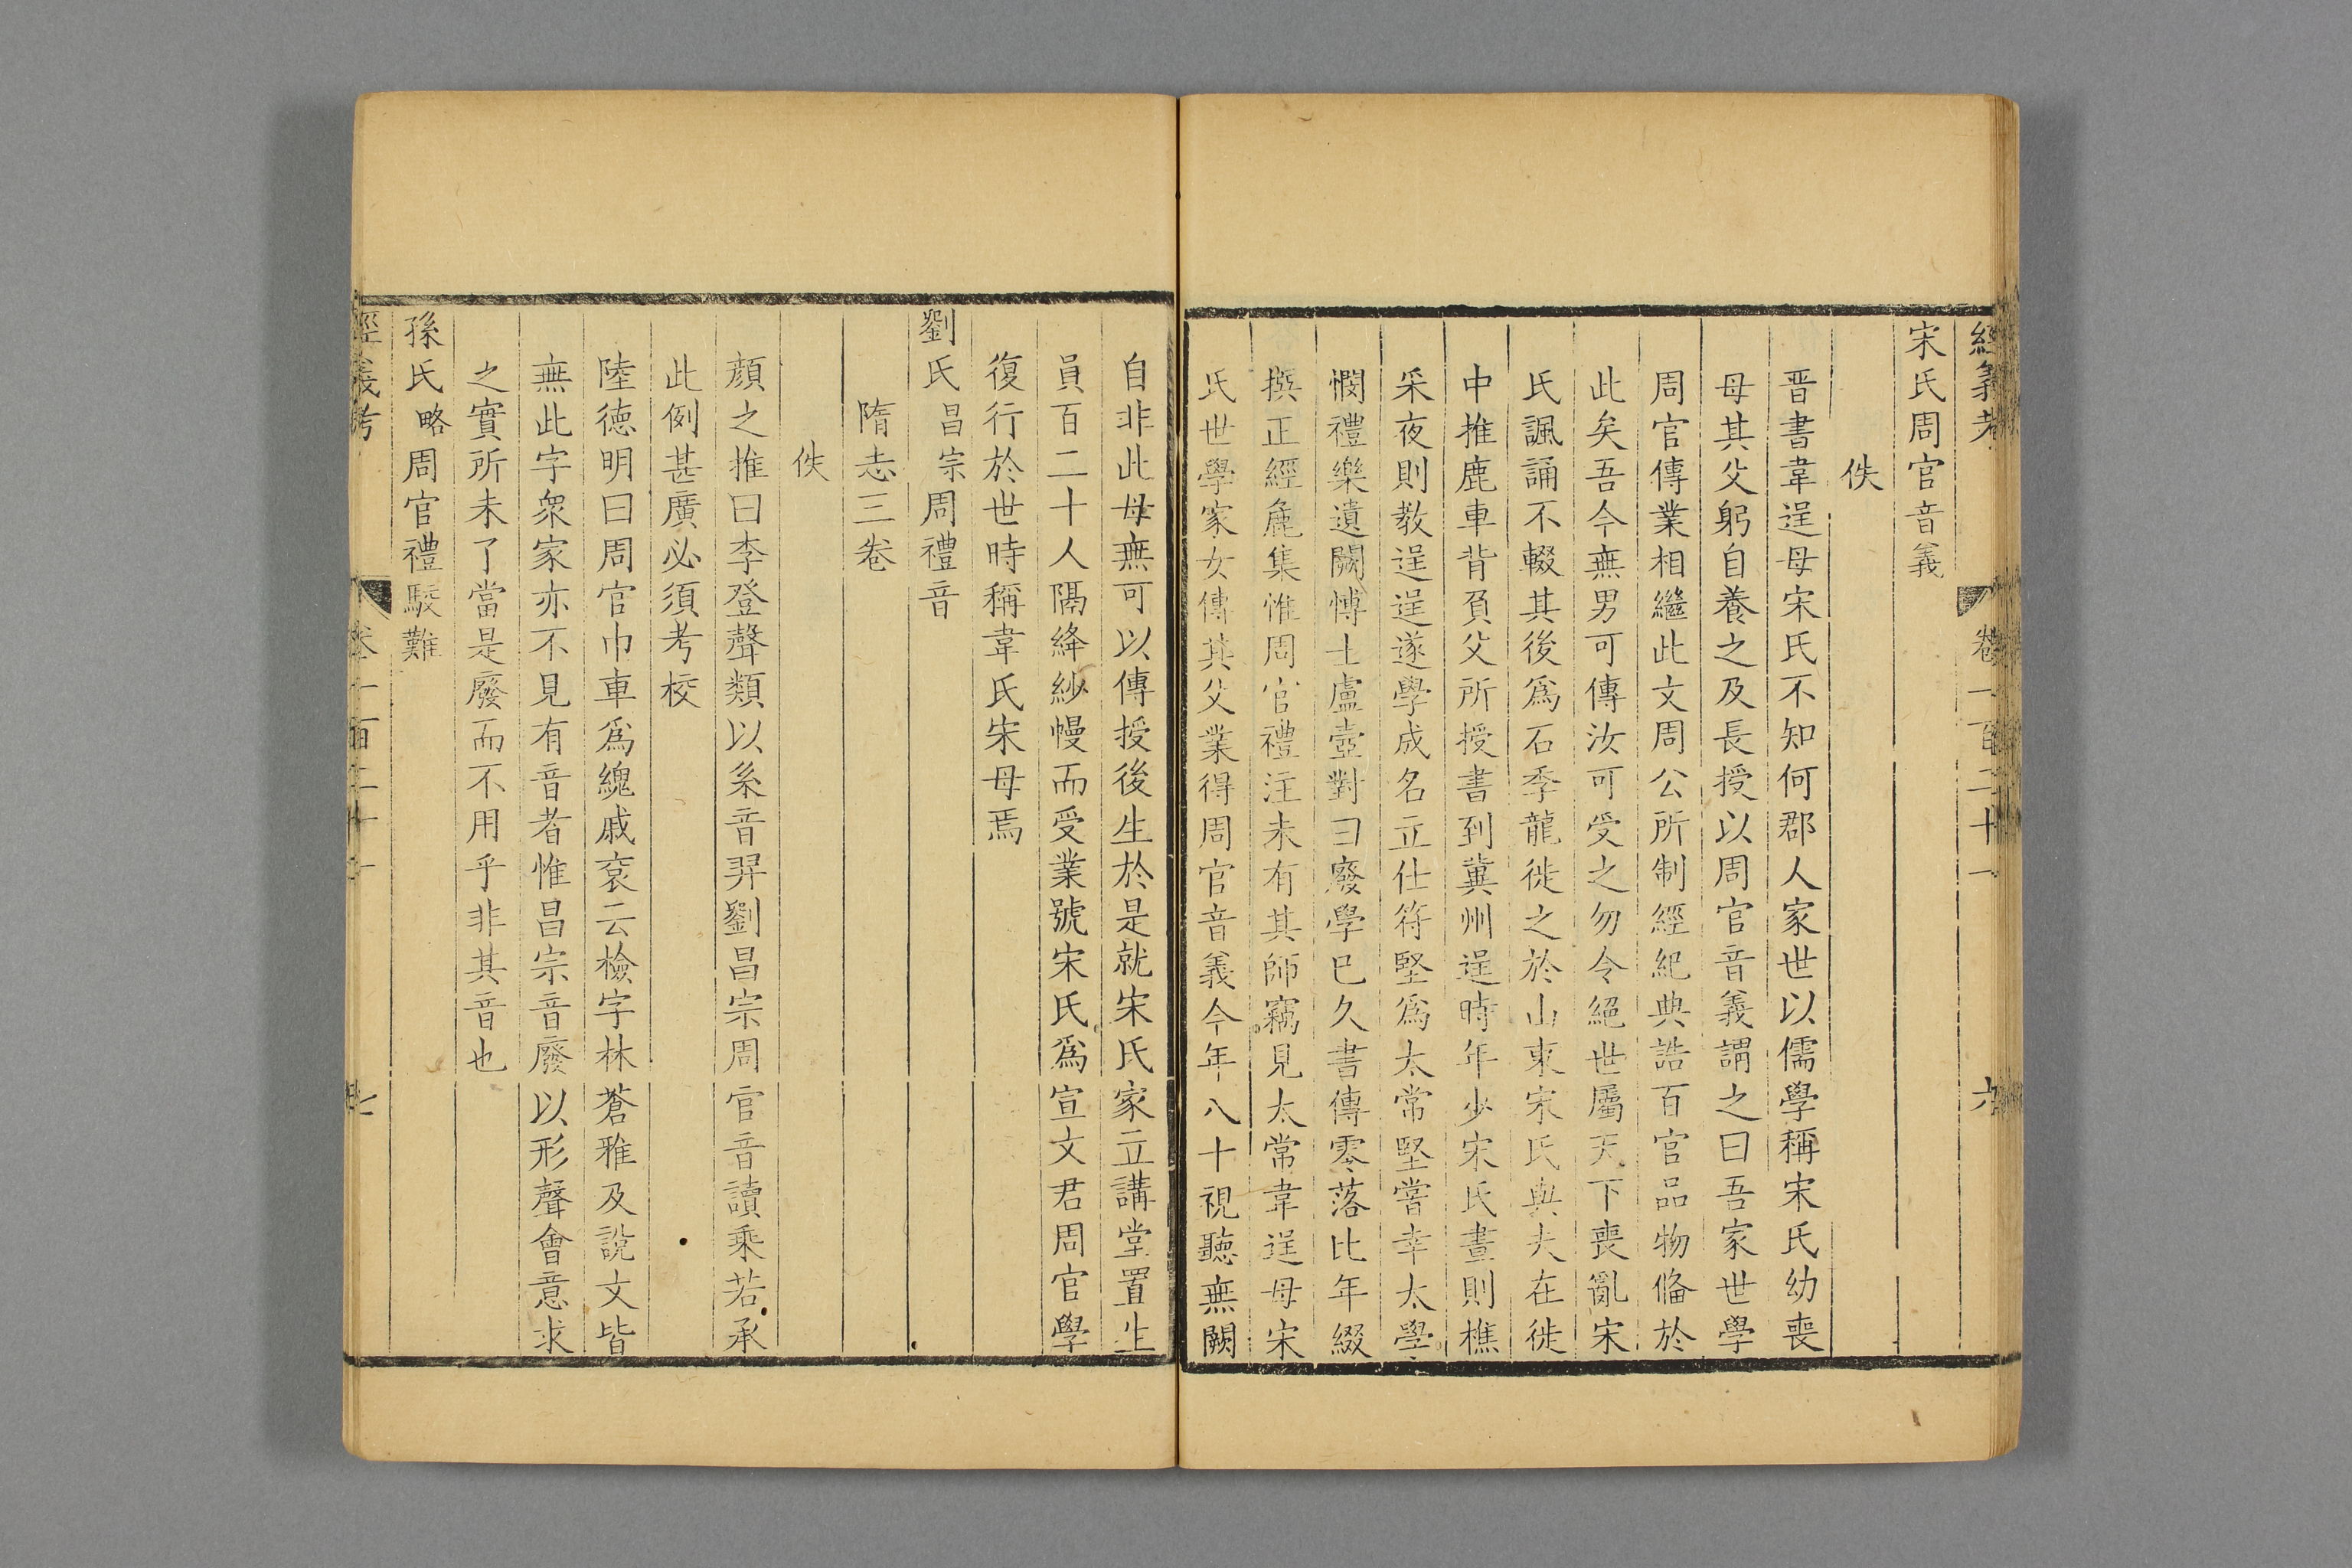 經義考 卷一百二十一 六
宋氏周官音義
佚
晋書韋逞母宋氏不知何郡人家世以儒學稱宋氏幼喪
母其父躬自養之及長授以周官音義謂之曰吾家世學
周官傳業相繼此文周公所制經紀典誥百官品物俻於
此矣吾今無男可傳汝可受之勿令絕世屬天下喪亂宋
氏諷誦不輟其後爲石季龍徙之於山東宋氏與夫在徙
中推鹿車背負父所授書到冀州逞時年少宋氏晝則樵
采夜則教逞逞遂學成名立仕符堅爲太常堅嘗幸太學
憫禮樂遺闕博士盧壼對曰廢學已久書傳零落比年綴
撰正經麄集惟周官禮注未有其師竊見太常韋逞母宋
氏世學家女傳其父業得周官音義今年八十視聽無闕
自非此母無可以傳授後生於是就宋氏家立講堂置生
員百二十人隔絳紗幔而受業號宋氏爲宣文君周官學
復行於世時稱韋氏宋母焉
劉氏昌宗周禮音
隋志三卷
佚
顏之推曰李登聲類以系音羿劉昌宗周官音讀乘若承
此例甚廣必須考校
陸德明曰周官巾車爲䌁戚袞云檢字林蒼雅及說文皆
無此字衆家亦不見有音者惟昌宗音廢以形聲會意求
之實所未了當是廢而不用乎非其音也
孫氏略周官禮駮難
經義考 卷一百二十一 七